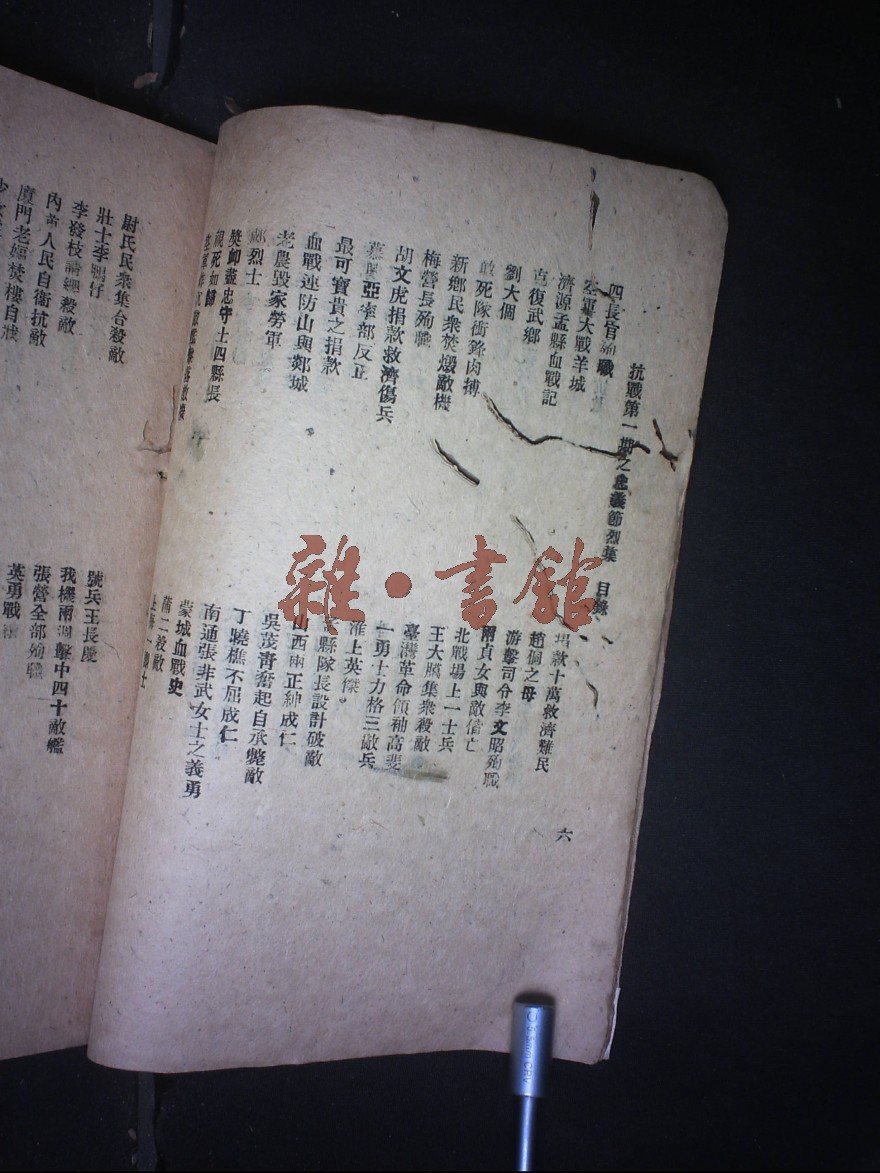 抗戰第一期之忠義節烈集　目錄　六
四長官殉職
空軍大戰羊城
濟源孟縣血戰記
克復武鄉
劉大個
敢死隊衝鋒肉搏
新鄉民衆焚燬敵機
梅營長殉職
胡文虎捐款救濟傷兵
慕興亞率部反正
最可寶貴之捐款
血戰連防山與鄴城
老農毀家勞軍
烈士
獎卹盡忠守土四縣長
視死如歸
捐款十萬救濟難民
趙侗之母
游擊司令李文昭殉職
兩貞女與敵偕亡
北戰場上一士兵
王大鵬集衆殺敵
臺灣革命領袖高斐
一勇士力格三敵兵
淮上英傑
縣隊長設計破敵
山西兩正紳成仁
吳茂青奮起自承斃敵
丁曉樵不屈成仁
南通張非武女士之義勇
蒙城血戰史
蒲二殺敵
尉氏民衆集台殺敵
壯士李鴨仔
李發枝 殺敵
內黃人民自衛抗敵
廈門老嫗焚樓自戕
號兵王長慶
我機兩週擊中四十敵艦
張營全部殉職
英勇戰
雜·書館